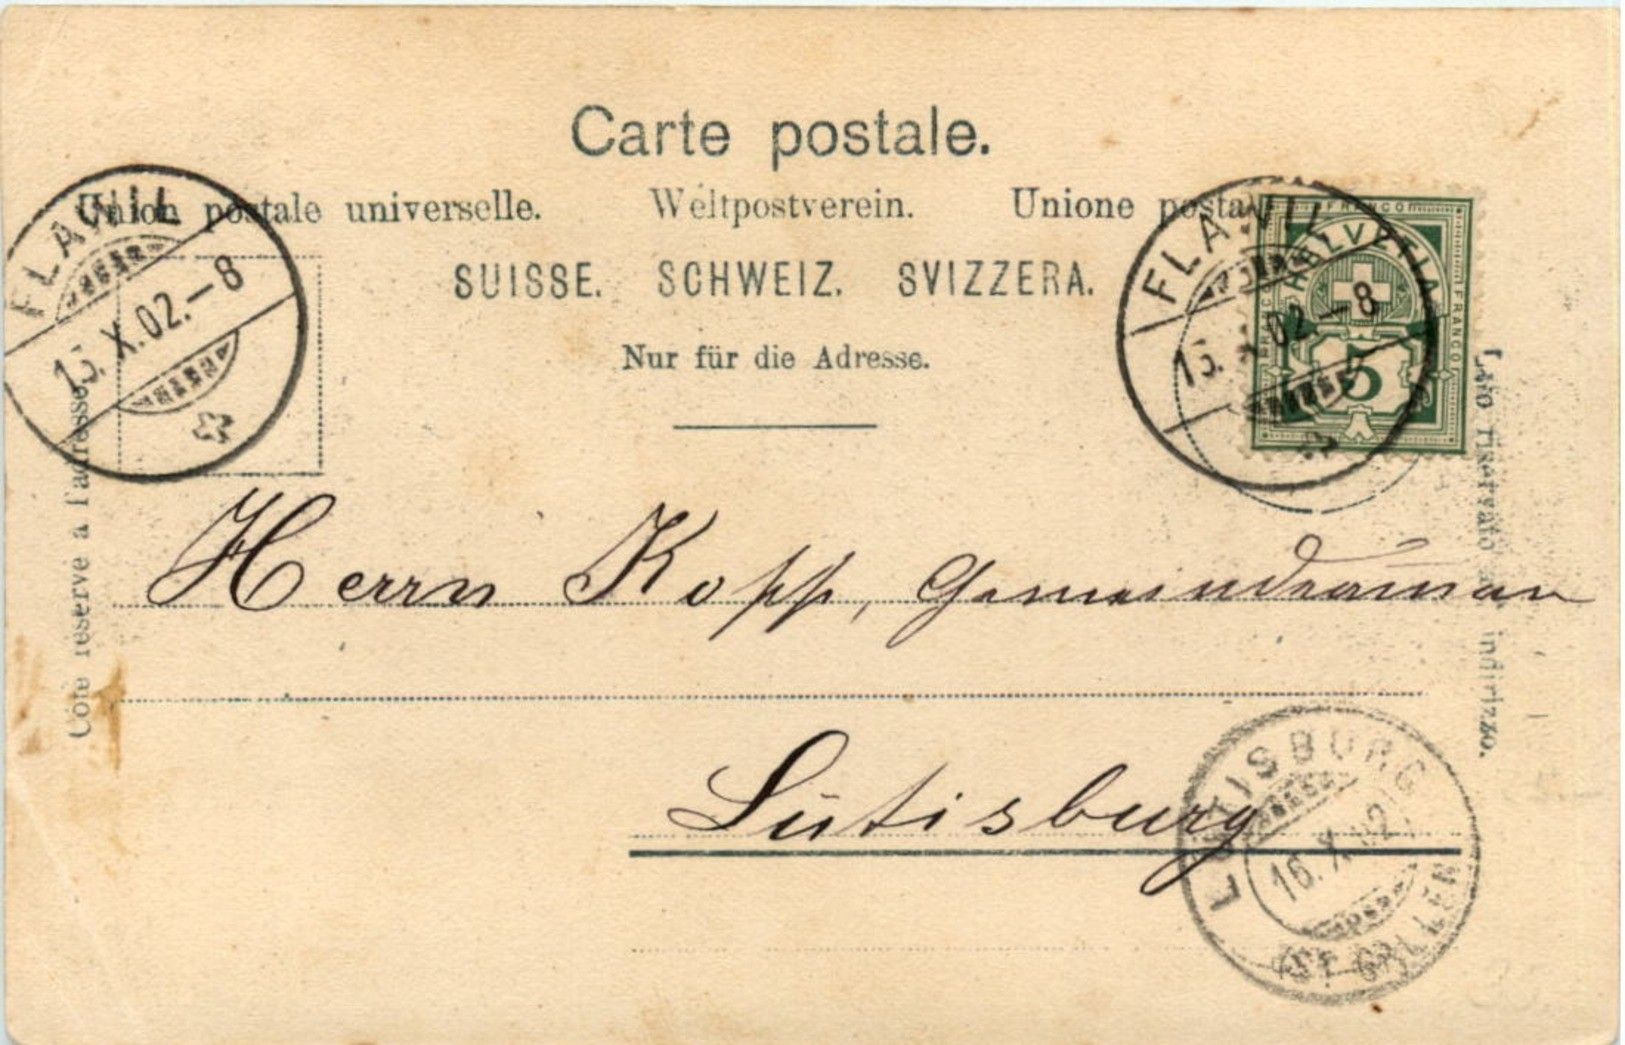 Carte postale.
Union postale universelle. Weltpostverein. Unione postale
SUISSE. SCHWEIZ. SVIZZERA.
Nur für die Adresse.
FLAWIL
15.X.02.—8
FLAWIL
15.X.02—8
FRANCO
HELVETIA
FRANCO
5
Côté réservé à l'adresse.
Lato riservato all' indirizzo.
Herrn Kopp, Gemeindeamman
Lütisburg
LÜTISBURG
16.X.02
(ST. GALLEN)